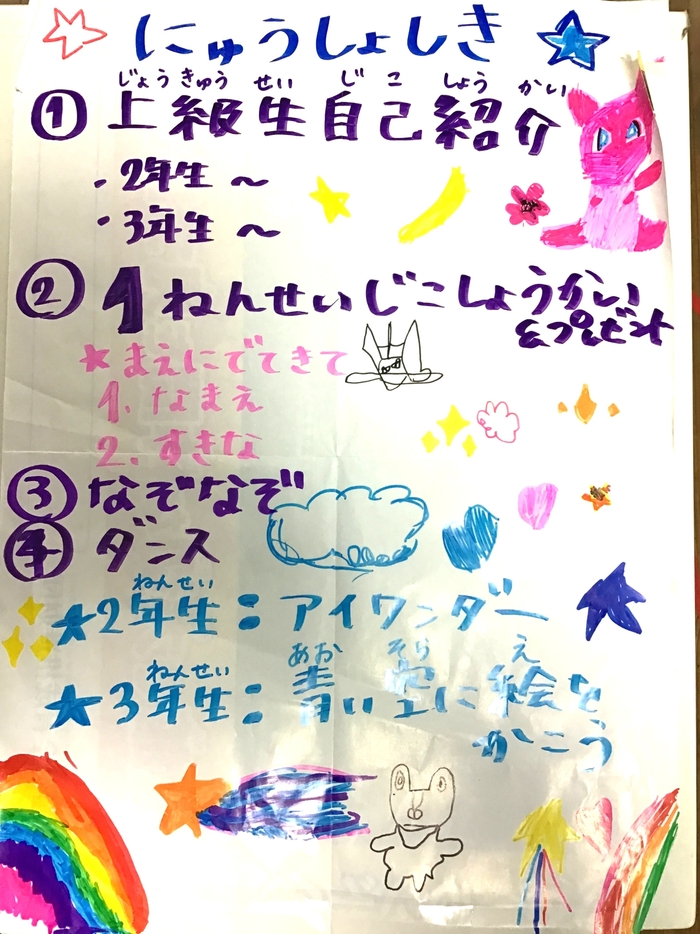 にゅうしょしき
じょうきゅう せい じこ しょうかい
① 上級生自己紹介
・2年生 〜
・3年生 〜
② 1ねんせいじこしょうかい
&プレゼント
*まえにでてきて
1. なまえ
2. すきな
③ なぞなぞ
④ ダンス
ねんせい
★2年生:アイワンダー
ねんせい あお そら え
★3年生:青い空に絵を
かこう